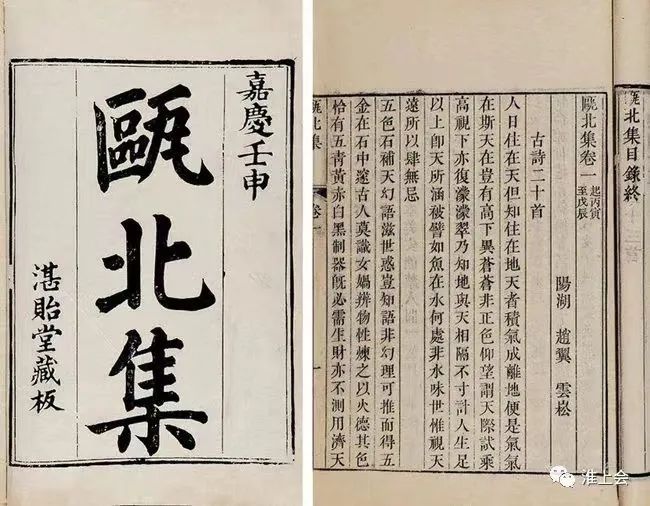 嘉慶壬申
甌北集
湛貽堂藏板
甌北集目錄終
甌北集卷一 起丙寅 至戊辰
陽湖 趙翼 雲崧
古詩二十首
人日住在天但知住在地天者積氣成離地便是氣氣
在斯天在豈有高下異蒼蒼非正色仰望謂天際試乘
高視下亦復濛濛翠乃知地與天相隔不寸計人生足
以上卽天所涵被譬如魚在水何處非水味世惟視天
遠所以肆無忌
五色石補天幻語滋世惑豈知語非幻理可推而得五
金在石中邃古人莫識女媧辨物性煉之以火德其色
恰有五青黃赤白黑制器旣必需生財亦不測用濟天
甌北集 卷一
淮上会